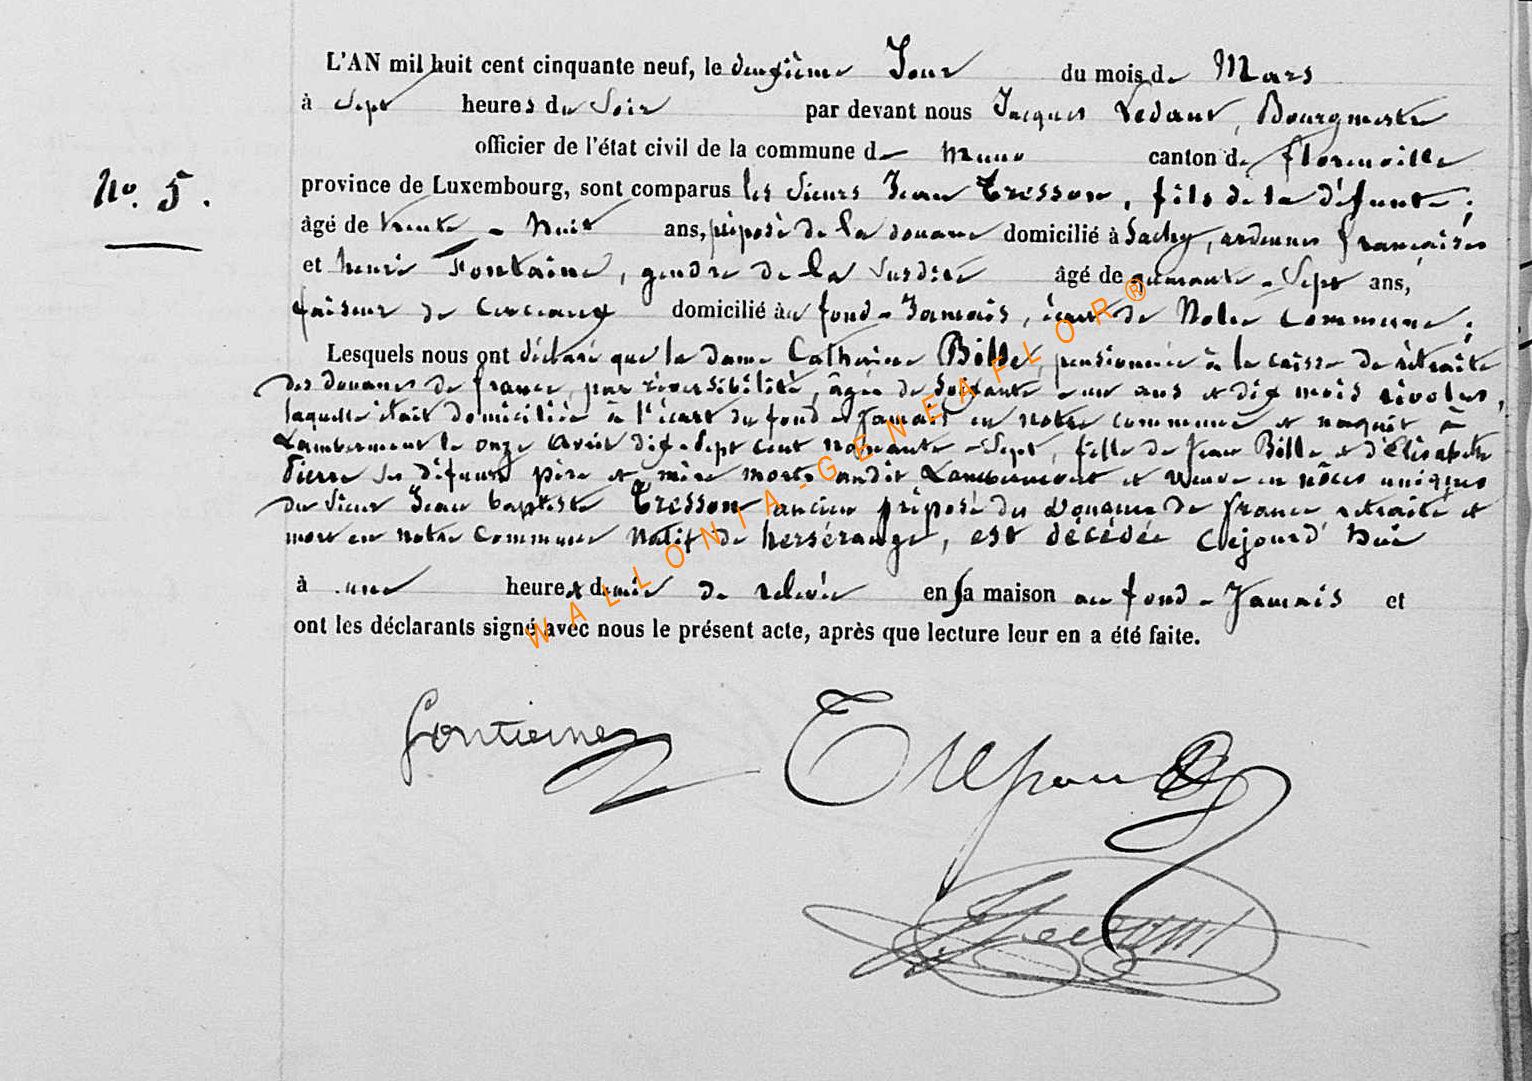 L'AN mil huit cent cinquante neuf, le deuxième Jour du mois de Mars
à Sept heures du Soir par devant nous Jacques Ledant, Bourgmestre
officier de l'état civil de la commune de Muno canton de florenville
No. 5.
province de Luxembourg, sont comparus les Sieurs Jean Tresson, fils de la défunte;
âgé de trente-huit ans, préposé de la douane domicilié à Sachy, ardennes françaises
et henri Fontaine, gendre de la Susdite âgé de quarante-Sept ans,
faiseur de Cerceaux domicilié au fond-Jamais, écart de Notre Commune;
Lesquels nous ont déclaré que la dame Catherine Bille, pensionnée à la caisse de retraite
des douanes de france, par réversibilité, âgée de Soixante-un ans et dix mois révolus,
laquelle était domiciliée à l'écart du fond-Jamais en notre commune et naquit à
Lambermont le onze Avril dix-Sept cent nonante-Sept, fille de Jean Bille et d'Elisabeth
Pierre Ses défunts père et mère morts audit Lambermont et veuve en nôces uniques
du Sieur Jean baptiste Tresson ancien préposé des Douanes de france retraité et
mort en notre Commune Natif de hersérange, est décédée Cejourd'hui
à une heure et demie de relevée en sa maison au fond-Jamais et
ont les déclarants signé avec nous le présent acte, après que lecture leur en a été faite.
fontaine Tresson
Ledant
WALLONIA-GENEAFLOR®